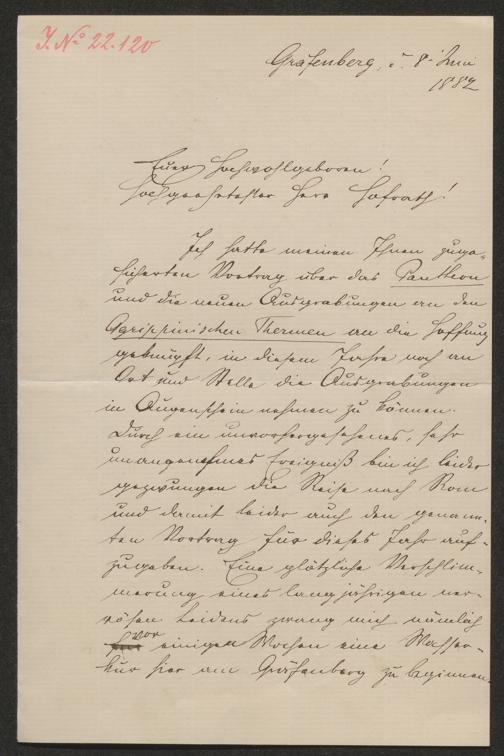 J. No 22.120
Gräfenberg, d. 8. Juni
1882
Euer Hochwohlgeboren!
Hochgeehrtester Herr Hofrath!
Ich hatte meinen Ihnen zuge-
sicherten Vortrag über das Pantheon
und die neuen Ausgrabungen an den
Agrippinischen Thermen an die Hoffnung
geknüpft, in diesem Jahre noch an
Ort und Stelle die Ausgrabungen
in Augenschein nehmen zu können.
Durch ein unvorhergesehenes, sehr
unangenehmes Ereigniß bin ich leider
gezwungen die Reise nach Rom
und damit leider auch den genann-
ten Vortrag für dieses Jahr auf-
zugeben. Eine plötzliche Verschlim-
merung eines langjährigen ner-
vösen Leidens zwang mich nämlich
vor einigen Wochen eine Wasser-
kur hier am Gräfenberg zu beginnen.